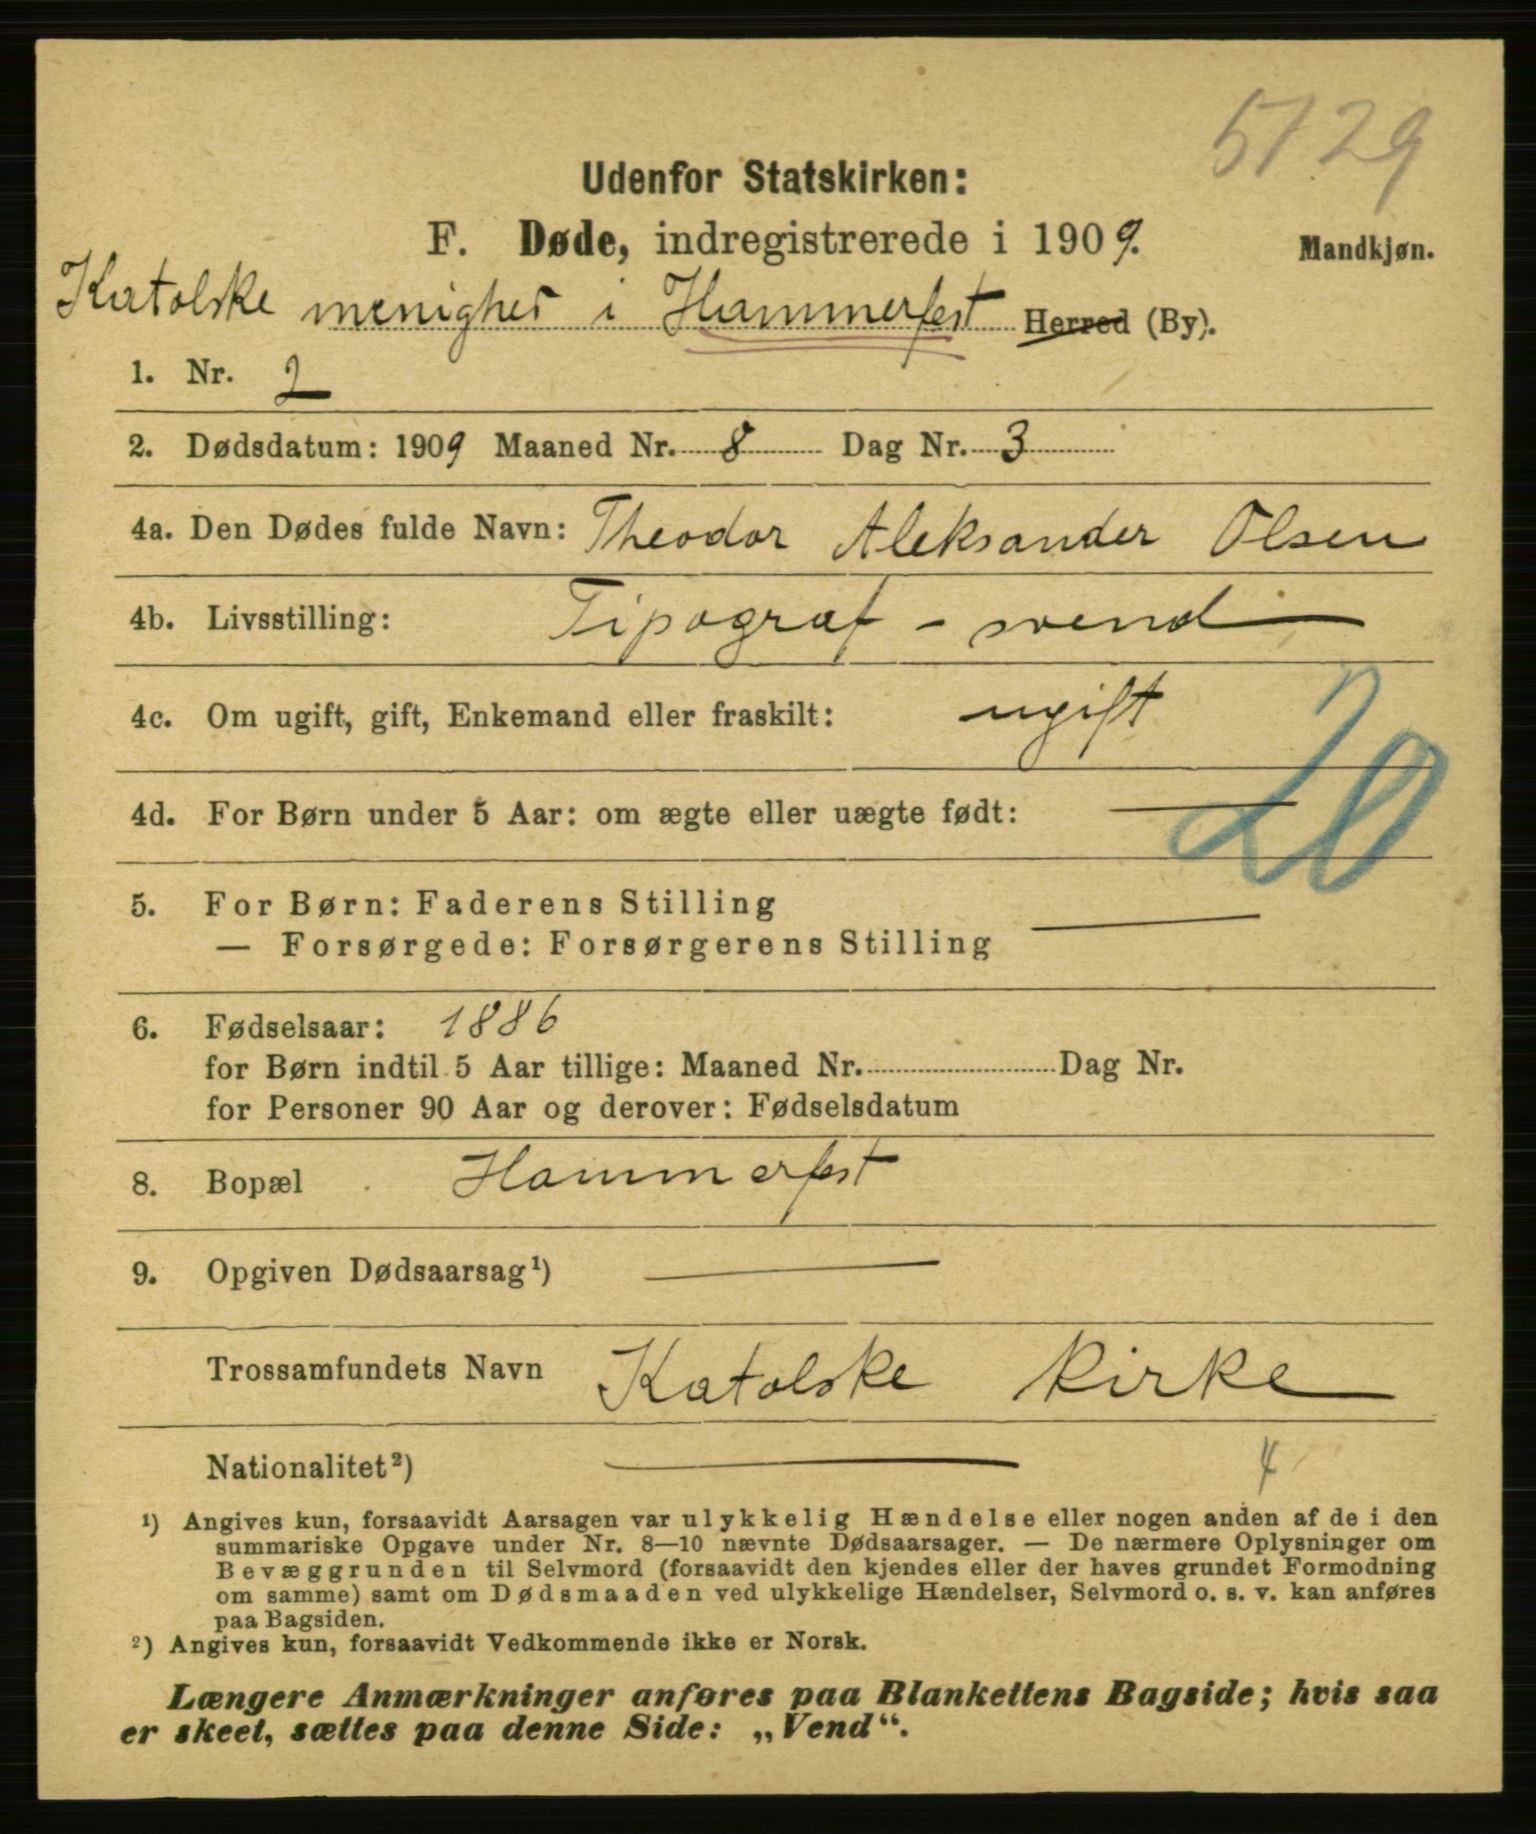 5729
Udenfor Statskirken:
F. Døde, indregistrerede i 1909.
Mandkjøn.
Katolske menighed i Hammerfest Herred (By).
1. Nr. 2
2. Dødsdatum: 1909 Maaned Nr. 8 Dag Nr. 3
4a. Den Dødes fulde Navn: Theodor Aleksander Olsen
4b. Livsstilling: Tipograf - svend
4c. Om ugift, gift, Enkemand eller fraskilt: ugift
20
4d. For Børn under 5 Aar: om ægte eller uægte født: —
5. For Børn: Faderens Stilling
— Forsørgede: Forsørgerens Stilling —
6. Fødselsaar: 1886
for Børn indtil 5 Aar tillige: Maaned Nr. Dag Nr.
for Personer 90 Aar og derover: Fødselsdatum
8. Bopæl Hammerfest
9. Opgiven Dødsaarsag¹) —
Trossamfundets Navn Katolske kirke
Nationalitet²) — 4
¹) Angives kun, forsaavidt Aarsagen var ulykkelig Hændelse eller nogen anden af de i den
summariske Opgave under Nr. 8—10 nævnte Dødsaarsager. — De nærmere Oplysninger om
Bevæggrunden til Selvmord (forsaavidt den kjendes eller der haves grundet Formodning
om samme) samt om Dødsmaaden ved ulykkelige Hændelser, Selvmord o. s. v. kan anføres
paa Bagsiden.
²) Angives kun, forsaavidt Vedkommende ikke er Norsk.
Længere Anmærkninger anføres paa Blankettens Bagside; hvis saa
er skeet, sættes paa denne Side: „Vend“.